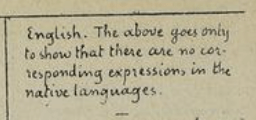 English. The above goes only
to show that there are no cor-
responding expressions in the
native languages.